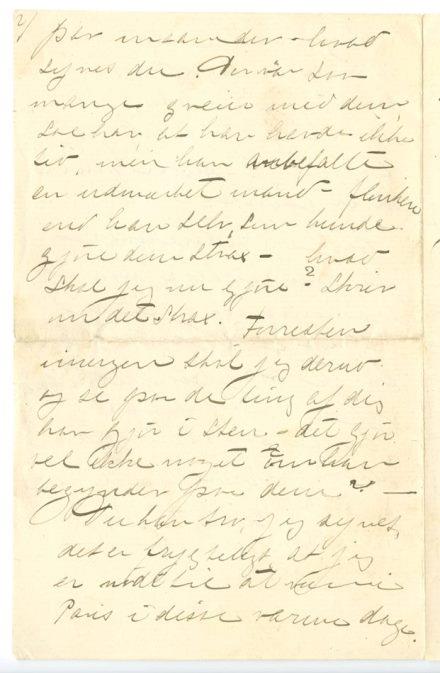 2/
par maaneder – hvad
synes du. Der var saa
mange greier med dem
saa han at han havde ikke
tid, men han anbefalte
en udmærket mand – flinkere
end han selv, som kunde
gjøre dem strax – hvad
skal jeg nu gjøre? Skriv
om det strax. Forresten
imorgen skal jeg derud
og se paa de ting af dig
han gjør i sten – det gjør
vel ikke noget om han
begynder paa dem? —
Du kan tro, jeg synes,
det er hyggeligt, at jeg
er nødt til at være i
Paris i disse varme dage.